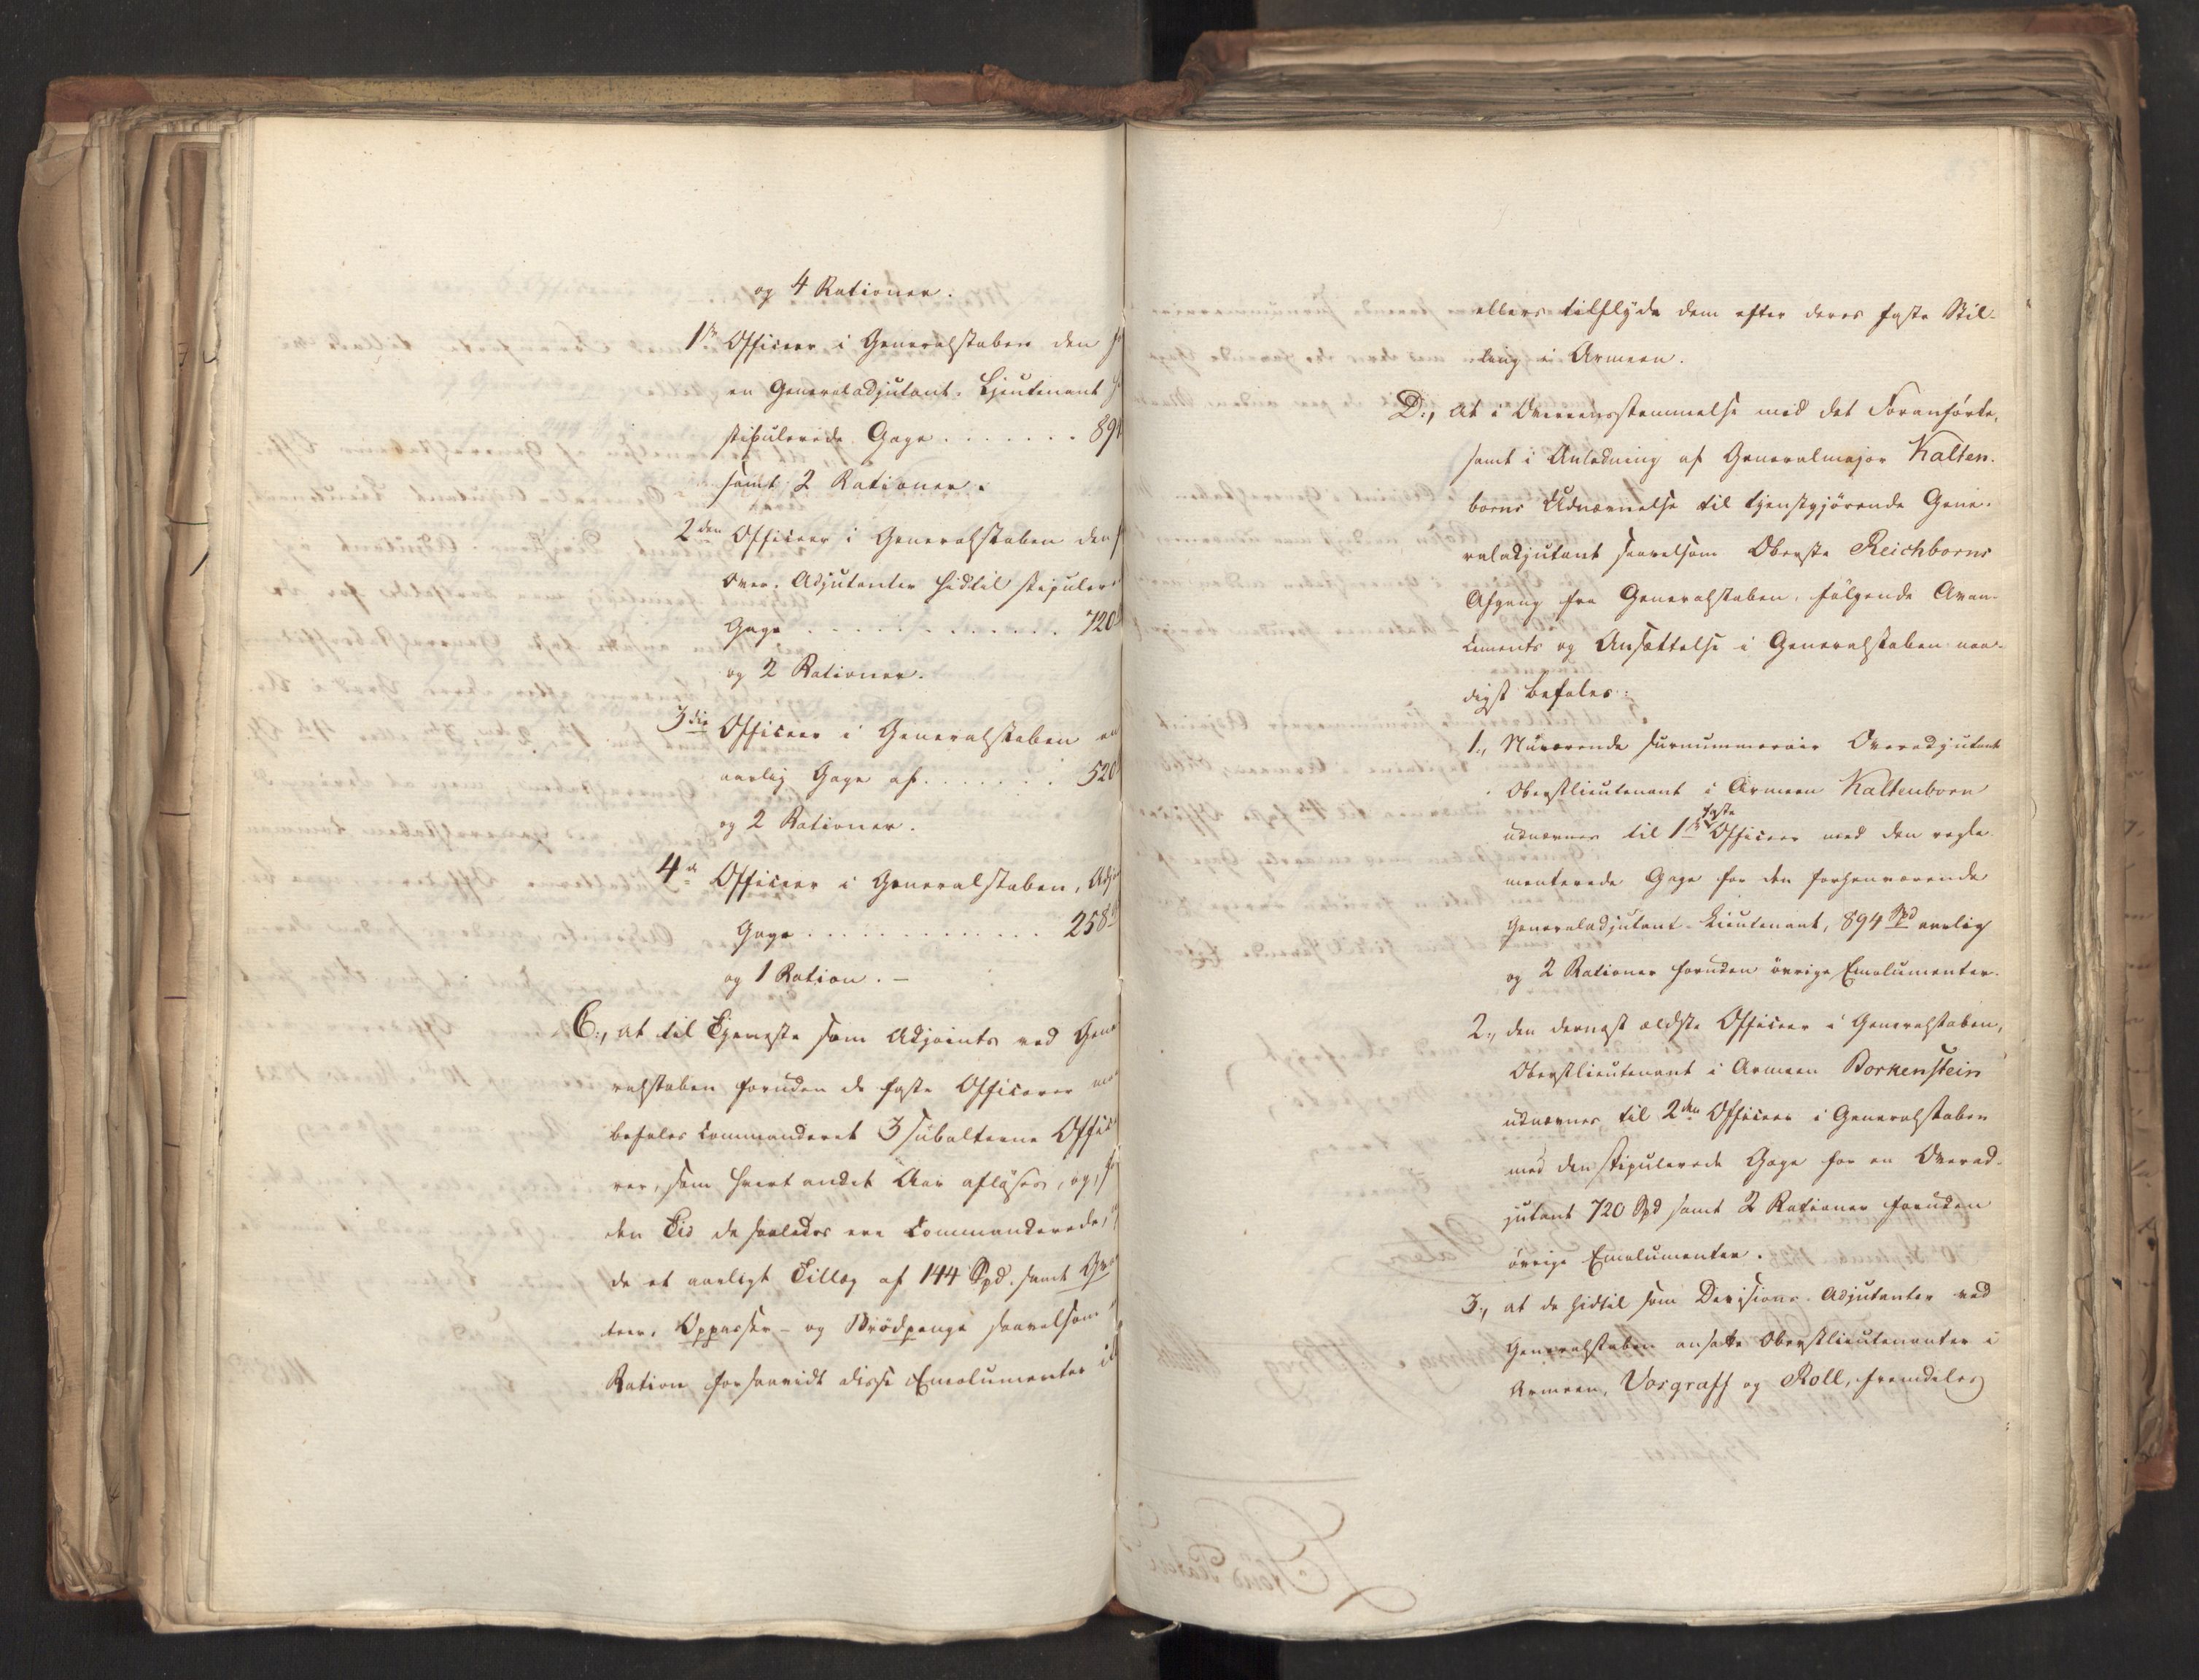 og 4 Rationer.
1ste Officeer i Generalstaben den
en Generaladjutant-Lieutenant
stipulerede Gage . . . . . . . 894
samt 2 Rationer.
2den Officeer i Generalstaben den
Over-Adjutanter hidtil stipulere
Gage . . . . . . . . . . . . 720
og 2 Rationer.
3die Officeer i Generalstaben en
aarlig Gage af . . . . . . . 520
og 2 Rationer.
4de Officeer i Generalstaben, Adj
Gage . . . . . . . . . . . . . 258
og 1 Ration. –
C., at til Tjeneste som Adjoints ved Gene
ralstaben foruden de faste Officerer maa
befales commanderet 3 subalterne Offic
rer, som hvert andet Aar aflöses, og,
den Tid de saaledes ere commanderede,
de et aarligt Tillæg af 144 Spd. samt Qvar
teer, Oppasser- og Brödpenge saavelsom
Ration forsaavidt disse Emolumenter
ellers tilflyde dem efter deres faste Stil-
ling i Armeen.
D., at i Overensstemmelse med det Foranförte,
samt i Anledning af Generalmajor Kalten-
borns Udnævnelse til tjenstgjörende Gene-
raladjutant saavelsom Oberste Reichborns
Afgang fra Generalstaben, fölgende Avan-
cements og Ansættelse i Generalstaben naa-
digst befales:
1., Nuværende surnummerair Overadjutant
Oberstlieutenant i Armeen Kaltenborn
faste
udnævnes til 1ste Officeer med den regle-
menterede Gage for den forhenværende
Generaladjutant-Lieutenant, 894 Spd aarlig
og 2 Rationer foruden övrige Emolumenter.
2., den dernæst ældste Officeer i Generalstaben,
Oberstlieutenant i Armeen Borkenstein
udnævnes til 2den Officeer i Generalstaben
med den stipulerede Gage for en Overad-
jutant 720 Spd samt 2 Rationer foruden
övrige Emolumenter.
3., at de hidtil som Divisions-Adjutanter ved
Generalstaben ansatte Oberstlieutenanter i
Armeen, Vosgraff og Roll, fremdeles